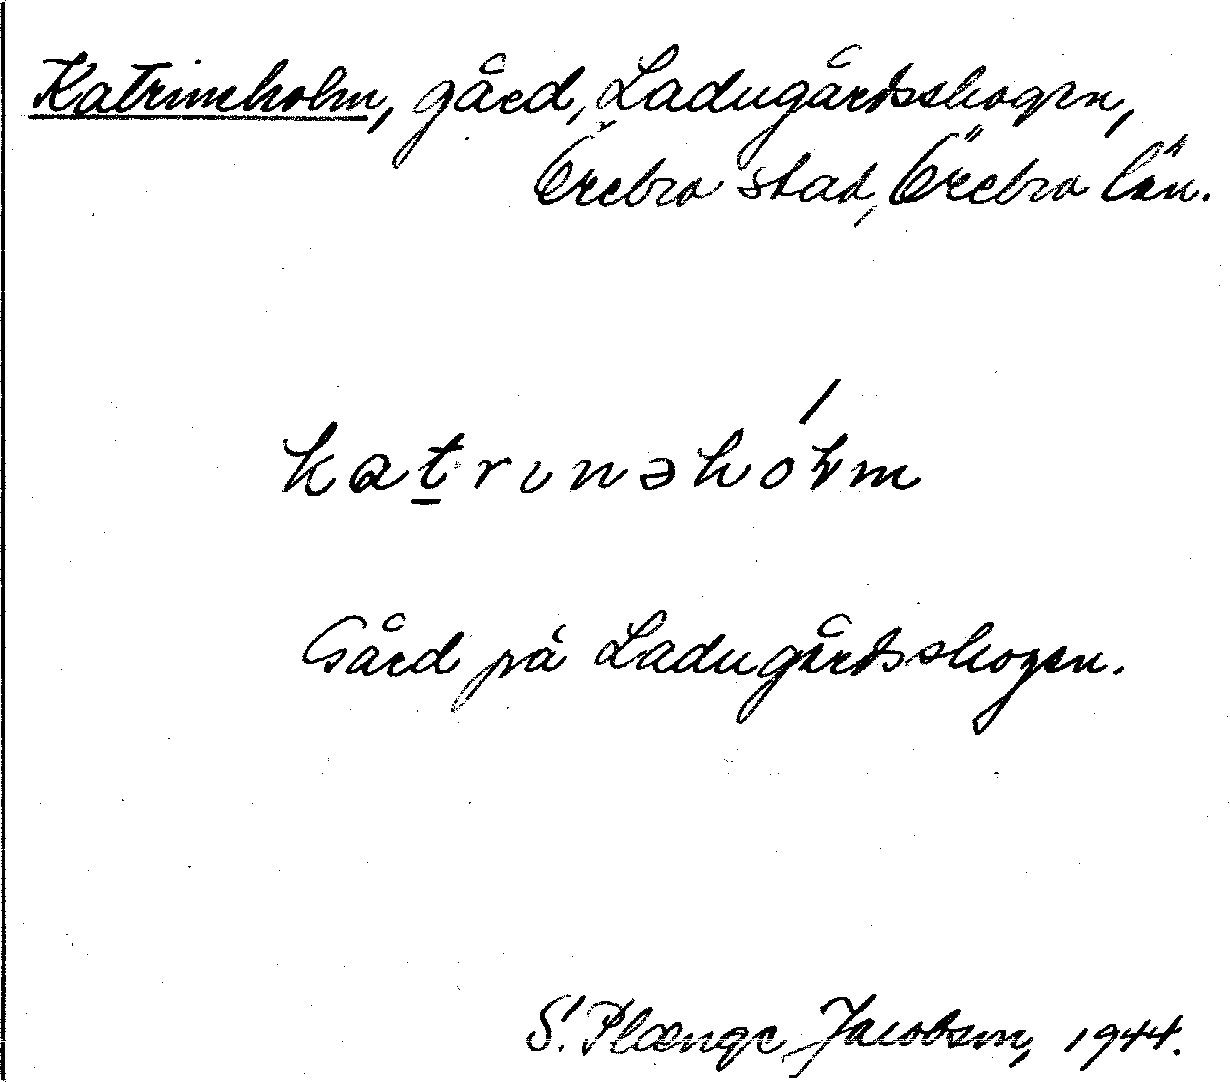 Katrineholm, gård, Ladugårdsskogen,
Örebro stad, Örebro län.
katrɩnəhólm
Gård på Ladugårdsskogen.
S. Plænge Jacobson, 1944.